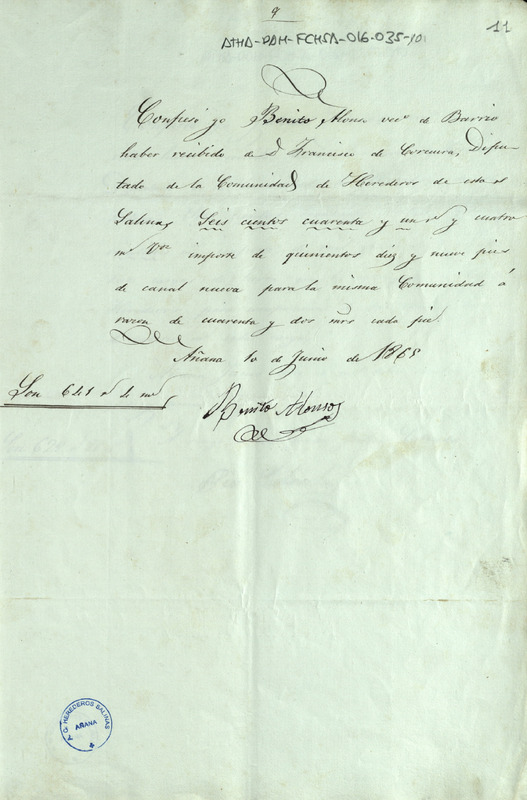 9
11
ATHA-DAH-FCHSA-016-035-10
Confieso yo Benito Alonso vecº de Barrio
haber recibido de D Francisco de Corcuera, Dipu-
tado de la Comunidad de Herederos de estas
Salinas Seis cientos cuarenta y un rs y cuatro
ms Von importe de quinientos diez y nueve pies
de canal nueva para la misma Comunidad á
razon de cuarenta y dos mrs cada pie
Añana 10 de Junio de 1865
Son 641 rs 4 ms
Benito Alonso
A. C. HEREDEROS SALINAS
AÑANA